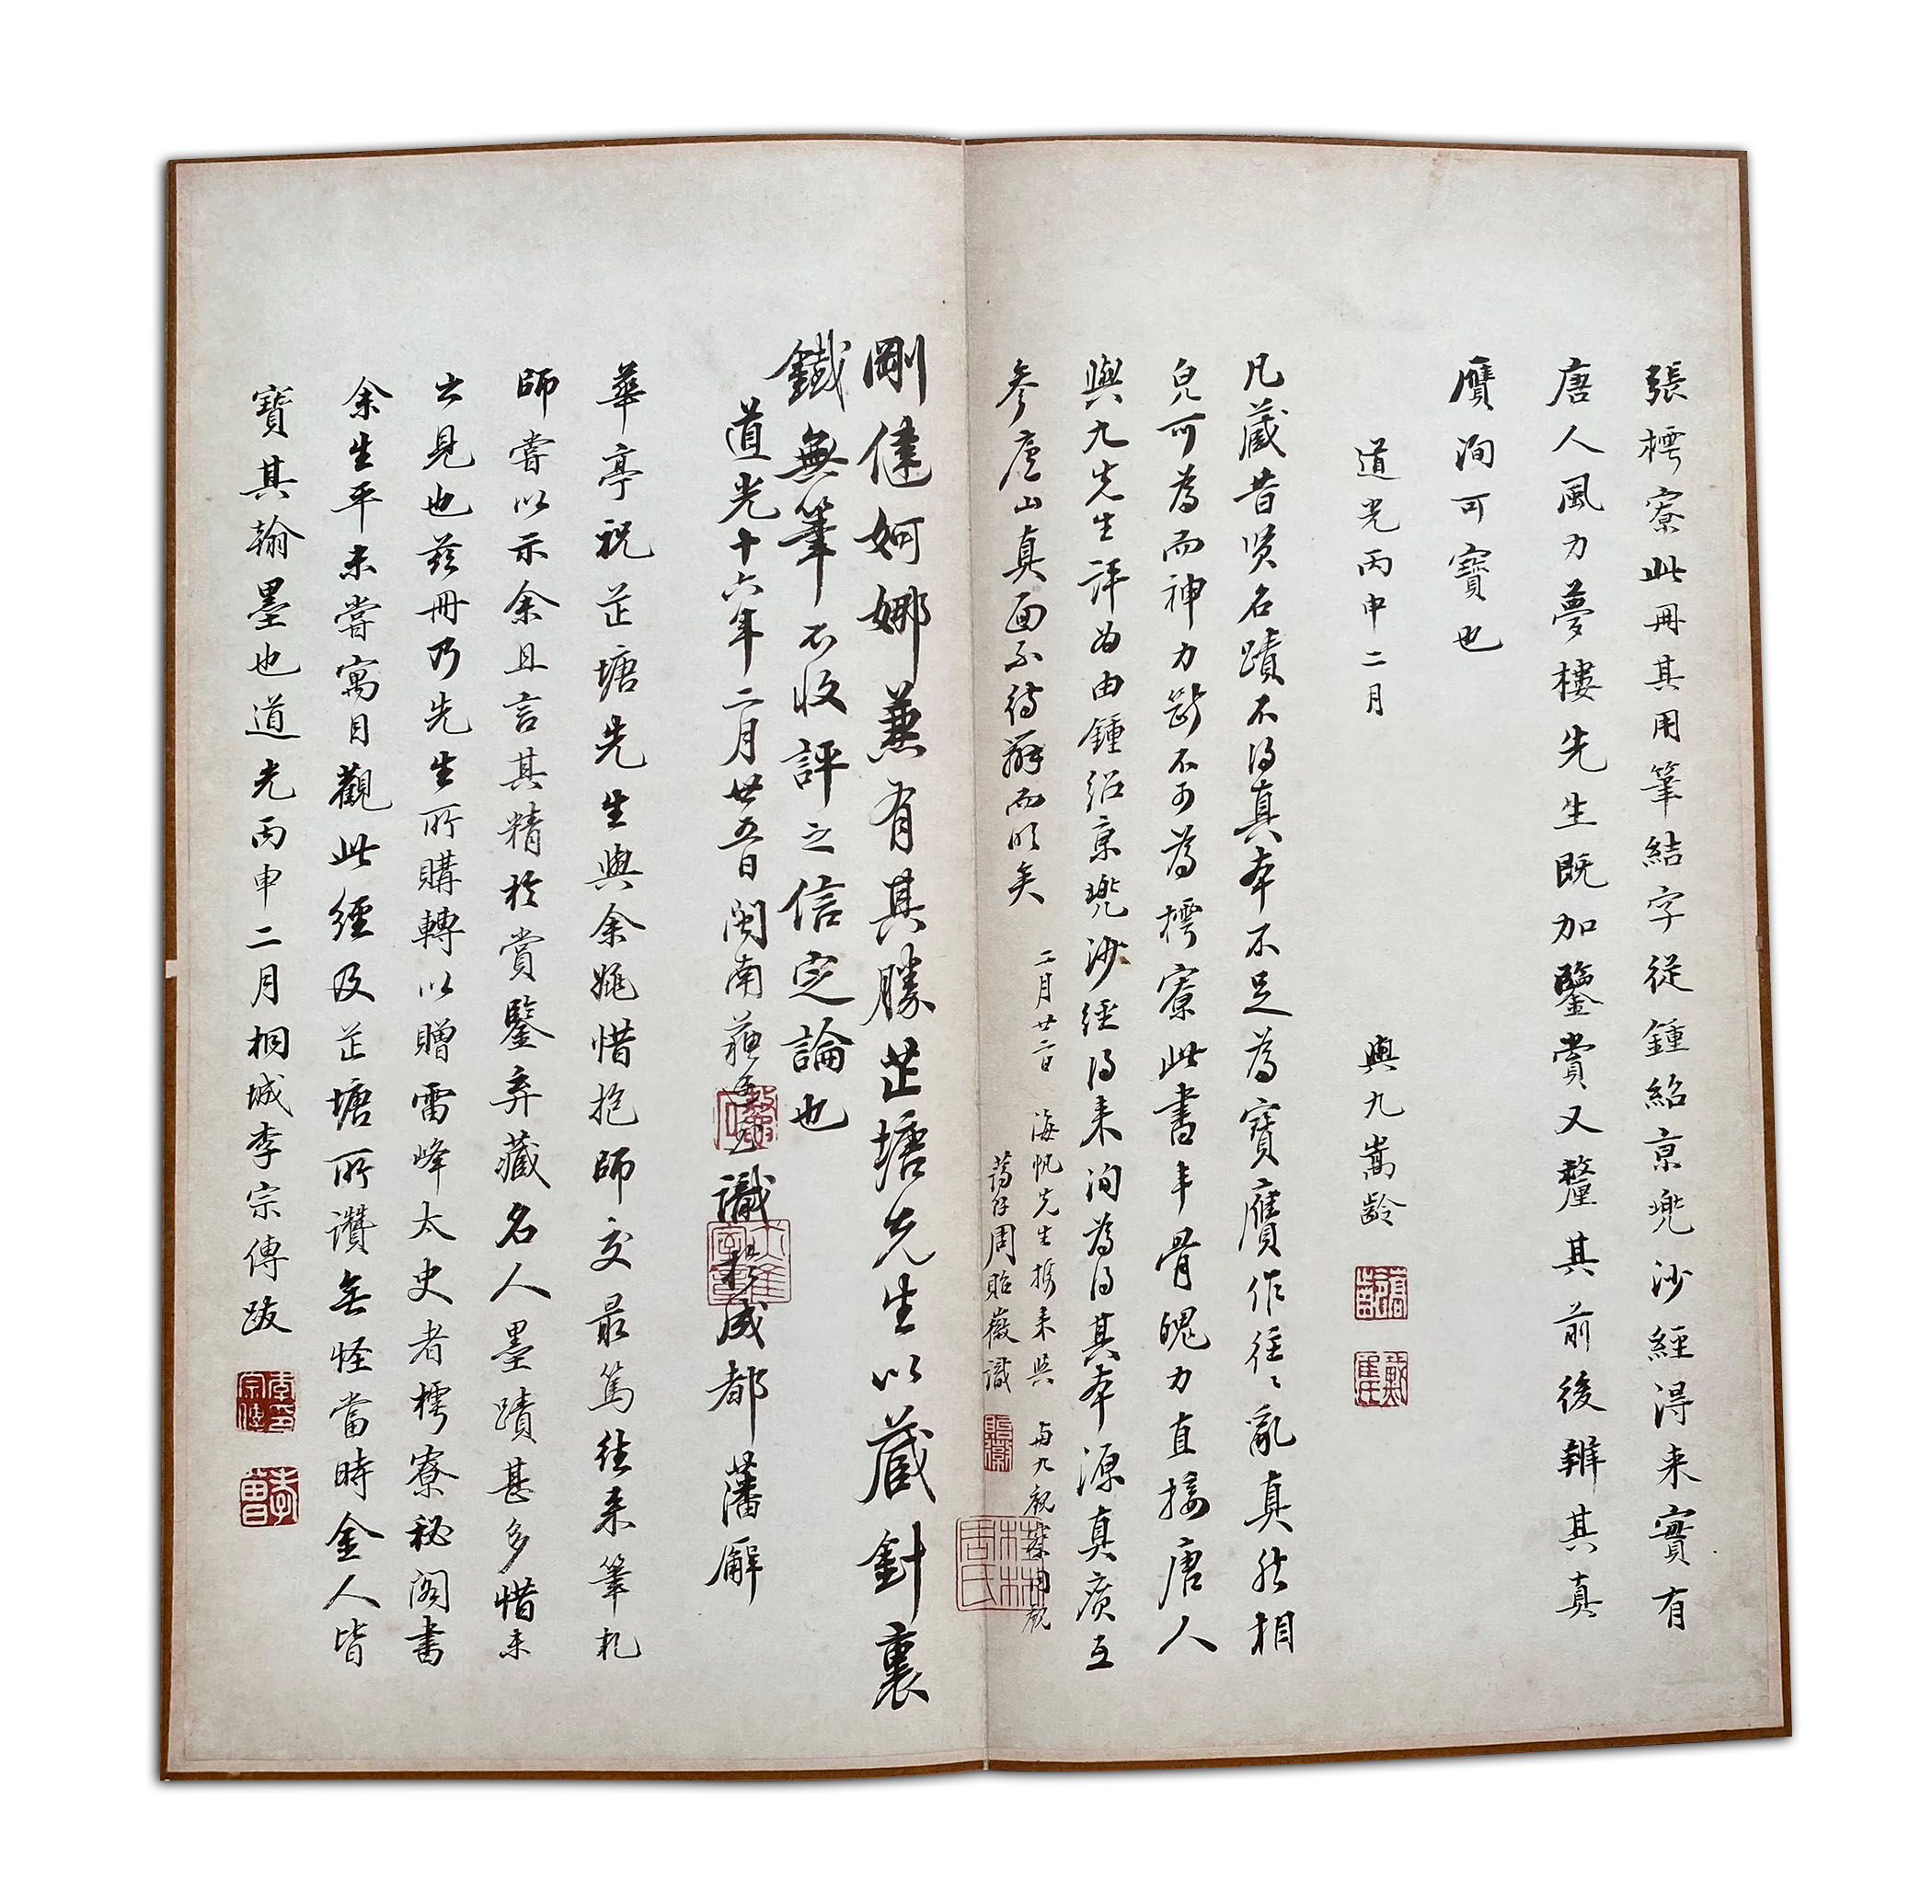 張樗寮此冊其用筆結字從鍾紹京兜沙經得来實有
唐人風力夢樓先生既加鑒賞又釐其前後辨其真
贋洵可寶也
道光丙申二月
與九嵩齡
凡藏昔賢名蹟不得真本不足為寶贋作往〻亂真然相
皃可為而神力斷不可為樗寮此書丰骨魄力直接唐人
與九先生評為由鍾紹京兜沙經得来洵為得其本源真廣互
參廬山真面不待辭而明矣
二月廿二日 海帆先生携来與 與九視察同觀
周貽薇識
剛健婀娜兼有其勝芷塘先生以藏針裏
鐵無筆不收評之信定論也
道光十六年二月廿五日閩南蘇識於成都藩廨
華亭祝芷塘先生與余姚惜抱師交最篤往来筆札
師嘗以示余且言其精於賞鑒弆藏名人墨蹟甚多惜未
出見也茲冊乃先生所購轉以贈雷峰太史者樗寮秘閣書
余生平未嘗寓目觀此經及芷塘所讚無怪當時金人皆
寶其翰墨也道光丙申二月桐城李宗傳跋